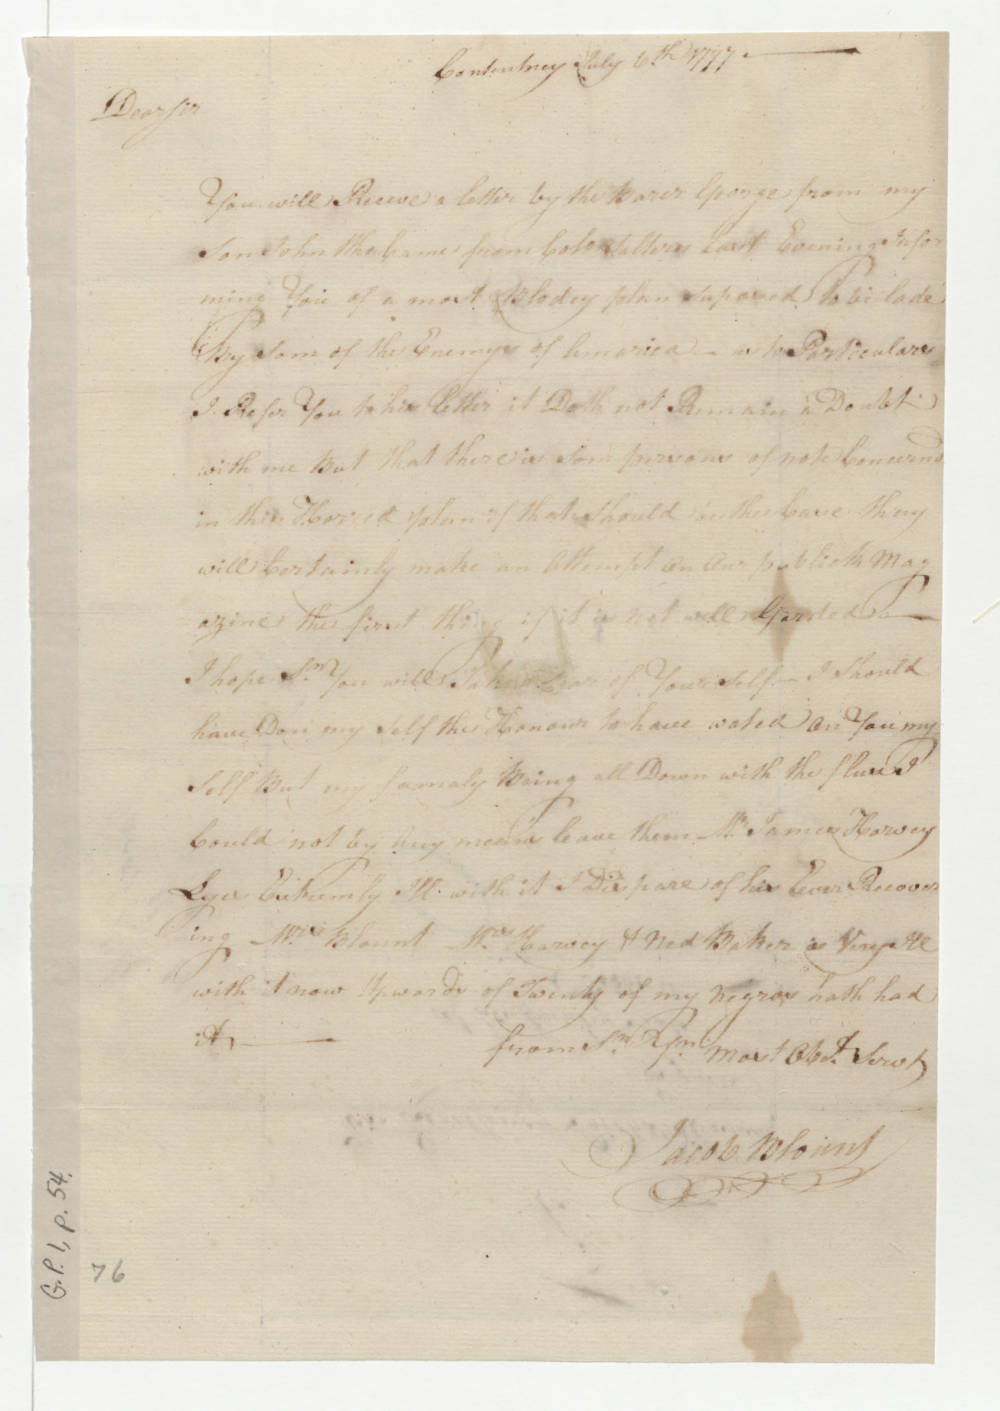 Contentney July 6th 1777.
Dear sir
You will Receve a letter by the Barer George from my
Son John Who Came from Colo Salters Last Evening Infor
ming You of a most Blodey plan Suposed To be lade
By Som of the Enemys of Amarica — as to Particulars
I Refer You to his letter it Doth not Remain a Doubt
with me But that there is Som persons of note Concernd
in this Horred plan if that Should be the Case they
will Certainly make an Attempt on our publick Mag
azine the first thing if it is not well Garded —
I hope Sr You will Take Care of Your Self — I Should
have Don my Self the Honour to have wated on You my
Self But my famaly Being all Down with the flux I
Could not by Any means leave them Mr James Harvey
Lyes Extremly Ill with it I Dispare of his Ever Recover
ing Mrs Blount Mrs Harvey & Ned Baker is Very Ill
with it now Upwards of Twenty of my negros hath had
it —
from Sr Yr most Obt. Servt
Jacob Blount
G.P. 1, p. 54.
76